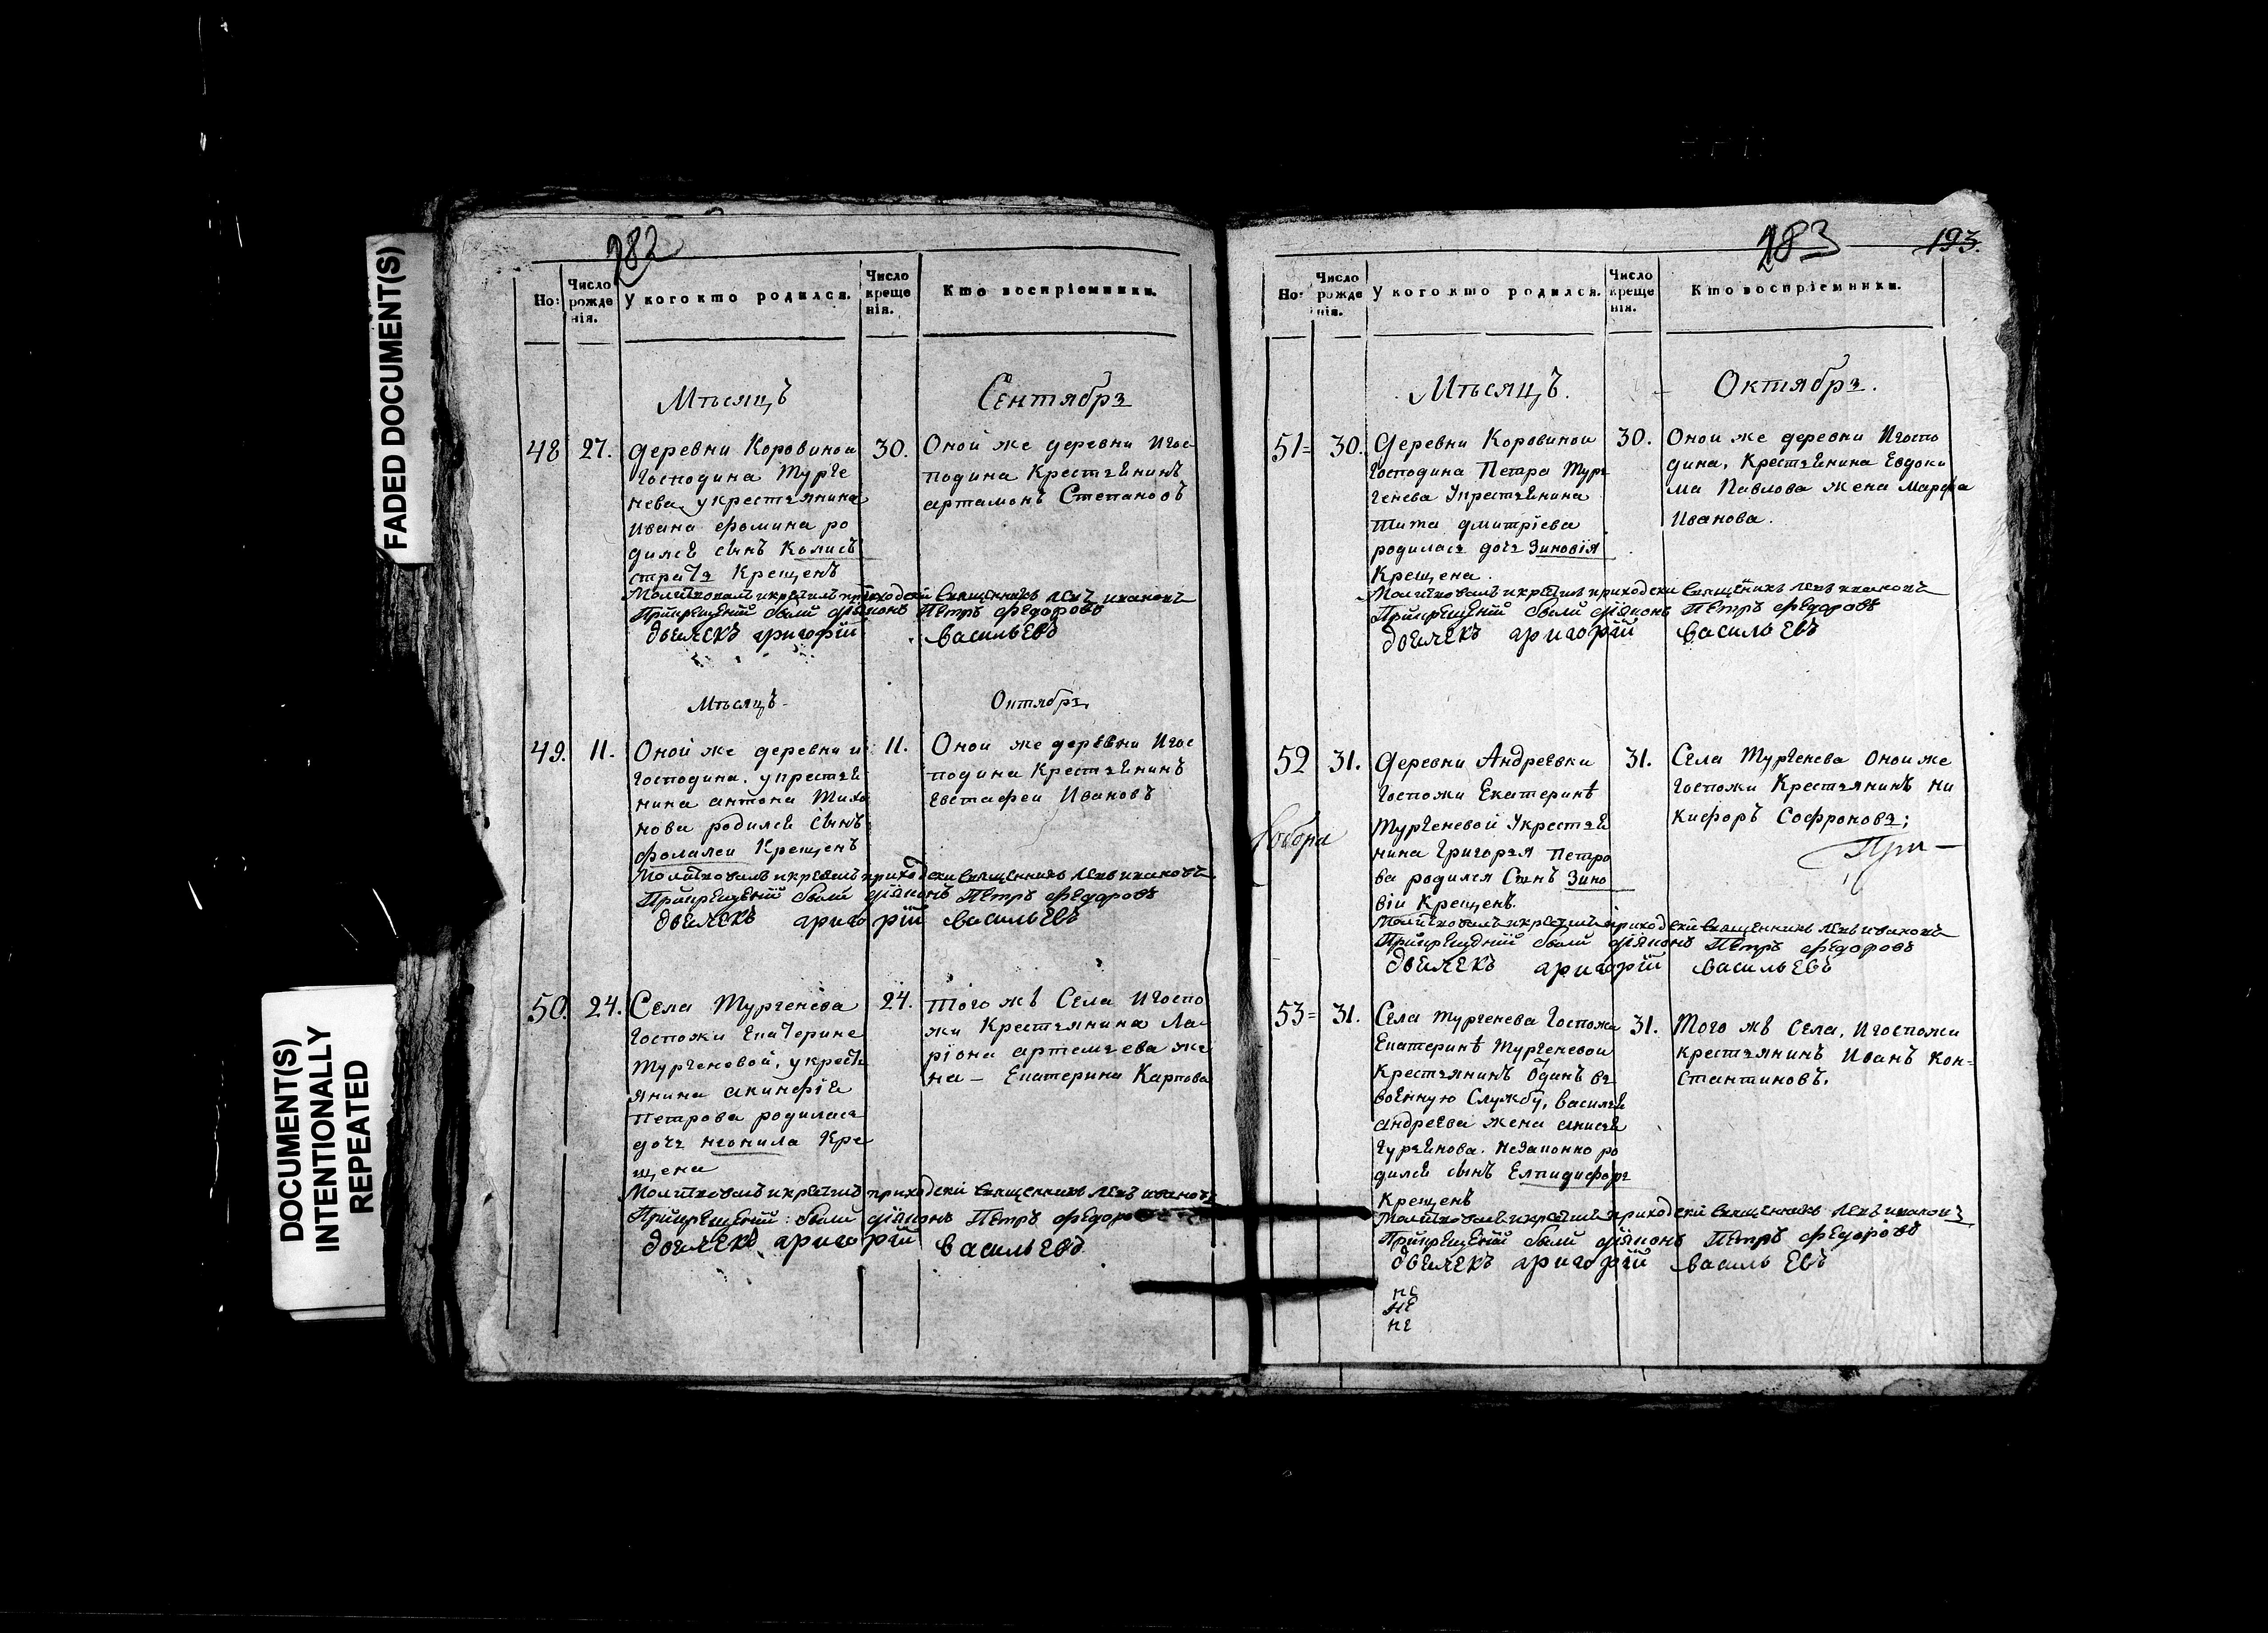 FADED DOCUMENT(S)
DOCUMENT(S)
INTENTIONALLY
REPEATED
282
Но:
Число
рожде
нія.
У кого кто родился.
Число
креще
нія.
Кто воспріемники.
Мѣсяцъ
Сентябрь
48
27.
деревни Коровиной
Господина Турге
нева, у крестьянина
Ивана Фомина ро
дился сынъ Калис
стратъ Крещенъ
30.
Оной же деревни Игос
подина Крестьянинъ
артамонъ Степановъ
Молитвовалъ и крестилъ приходскій священникъ левъ ивановъ
При крещеніи были діяконъ Петръ Федоровъ
дьячекъ григорій васильевъ
Мѣсяцъ
Октябрь
49.
11.
Оной же деревни и
Господина. у крестья
нина антона Тихо
нова родился сынъ
фалалеи Крещенъ
11.
Оной же деревни Игос
подина Крестьянинъ
Евстафеи Ивановъ
Молитвовалъ и крестилъ приходски священникъ левъ ивановъ
При крещеніи были діяконъ Петръ Федоровъ
дьячекъ григорій васильевъ
50.
24.
Села Тургенева
Госпожи Екатерине
Тургеневой, у кресть
янина акинфія
Петрова родилась
дочь неонила Кре
щена
24.
Того жъ Села Игоспо
жи Крестьянина Ла-
ріона артемьева же
на - Екатерина Карпова
Молитвовалъ и крестилъ приходскій священникъ левъ ивановъ
При крещеніи: были діяконъ Петръ Федоровъ
дьячекъ григорій васильевъ
283
193.
Но:
Число
рожде
нія.
У кого кто родился.
Число
креще
нія.
Кто воспріемники.
Мѣсяцъ.
Октябрь.
51=
30.
Деревни Коровиной
Господина Петра Тур
генева Укрестьянина
Тита Дмитріева
родилась дочь Зиновія
Крещена.
30.
Оной же деревни Игоспо
дина, Крестьянина Евдоки
ма Павлова жена Марфа
Иванова.
Молитвовалъ и крестилъ приходски священникъ левъ ивановъ
При крещеніи были діяконъ Петръ Федоровъ
дьячекъ григорій васильевъ
52
31.
Деревни Андреевки
Госпожи Екатеринѣ
Тургеневой Укрестья
нина Григорья Петро
ва родился Сынъ Зино
віи Крещенъ.
31.
Села Тургенева Оной же
Госпожи Крестьянинъ Ни
кифоръ Софроновъ;
Молитвовалъ и крестилъ приходскій священникъ левъ ивановъ
При крещеніи были діяконъ Петръ Федоровъ
дьячекъ григорій васильевъ
53=
31.
Села Тургенева Госпожи
Екатеринѣ Тургеневой
Крестьянинъ Оданъ въ
военную Службу, Василья
андреева жена анисья
Гурьянова. Незаконно ро
дился сынъ Елпидифоръ
Крещенъ
31.
Того жъ Села, Игоспожи
крестьянинъ Иванъ Кон=
стантиновъ.
Молитвовалъ и крестилъ приходскій священникъ левъ ивановъ
При крещеніи были діяконъ Петръ Федоровъ
дьячекъ григорій васильевъ
не
не
не